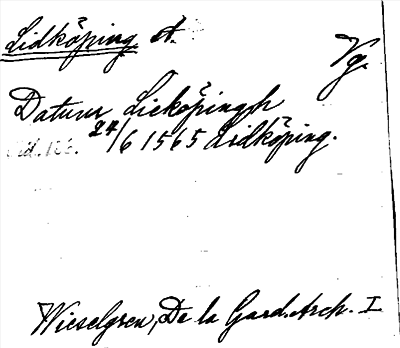 Lidköping st. Vg.
Datum Lieköpingh
24/6 1565 Lidköping.
Wieselgren, De la Gard. Arch. I